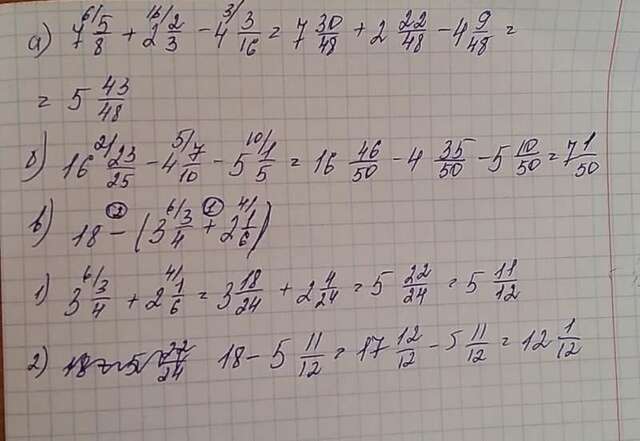 а) 7 ⁶⁄ 5/8 + 2 ¹⁶⁄ 2/3 - 4 ³⁄ 3/16 = 7 30/48 + 2 22/48 - 4 9/48 =
= 5 43/48
б) 16 ²⁄ 23/25 - 4 ⁵⁄ 7/10 - 5 ¹⁰⁄ 1/5 = 16 46/50 - 4 35/50 - 5 10/50 = 7 1/50
в) 18 -② (3 ⁶⁄ 3/4 +① 2 ⁴⁄ 1/6)
1) 3 ⁶⁄ 3/4 + 2 ⁴⁄ 1/6 = 3 18/24 + 2 4/24 = 5 22/24 = 5 11/12
2) 18 - 5 22/24 18 - 5 11/12 = 17 12/12 - 5 11/12 = 12 1/12